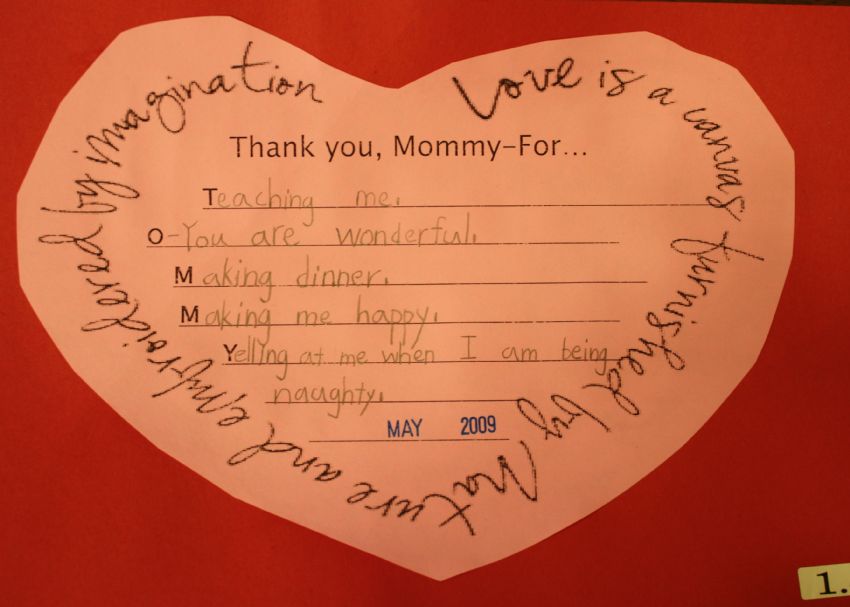 Love is a canvas furnished by Nature and embroidered by imagination
Thank you, Mommy–For...
Teaching me.
O-You are wonderful.
Making dinner.
Making me happy.
Yelling at me when I am being
naughty.
MAY 2009
1.